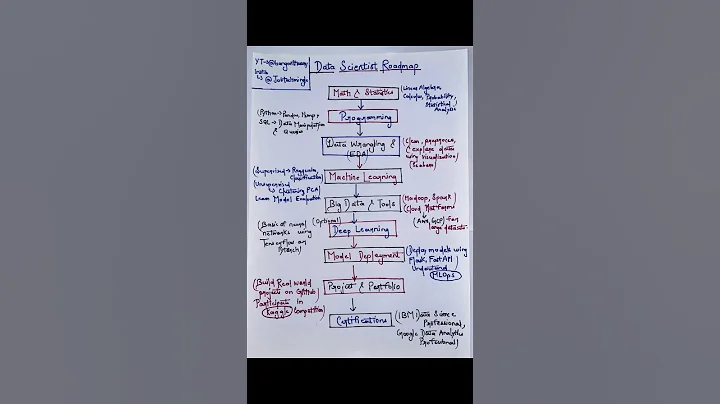 Data Scientist Roadmap
YT →
Insta
Math & Statistics
(Linear Algebra,
Calculus, Probability,
Statistical
Analysis
Programming
(Python → Pandas, Numpy
SQL → Data Manipulation
& Queries
Data Wrangling &
(EDA)
(Clean, preprocess,
& explore data
using visualization)
(Seaborn)
Machine Learning
(Supervised → Regression,
Classification)
(Unsupervised
↳ Clustering PCA)
Learn Model Evaluation
Big Data & Tools
(Hadoop, Spark)
(Cloud Platforms
(AWS, GCP) for
large datasets
(Optional)
Deep Learning
(Basics of neural
networks using
TensorFlow or
PyTorch)
Model Deployment
(Deploy models using
Flask, FastAPI
Understand
MLOps
Project & Portfolio
(Build Real world
projects on GitHub)
Participate in
Kaggle Competition)
Certifications
(IBM Data Science
Professional,
Google Data Analytics
Professional)